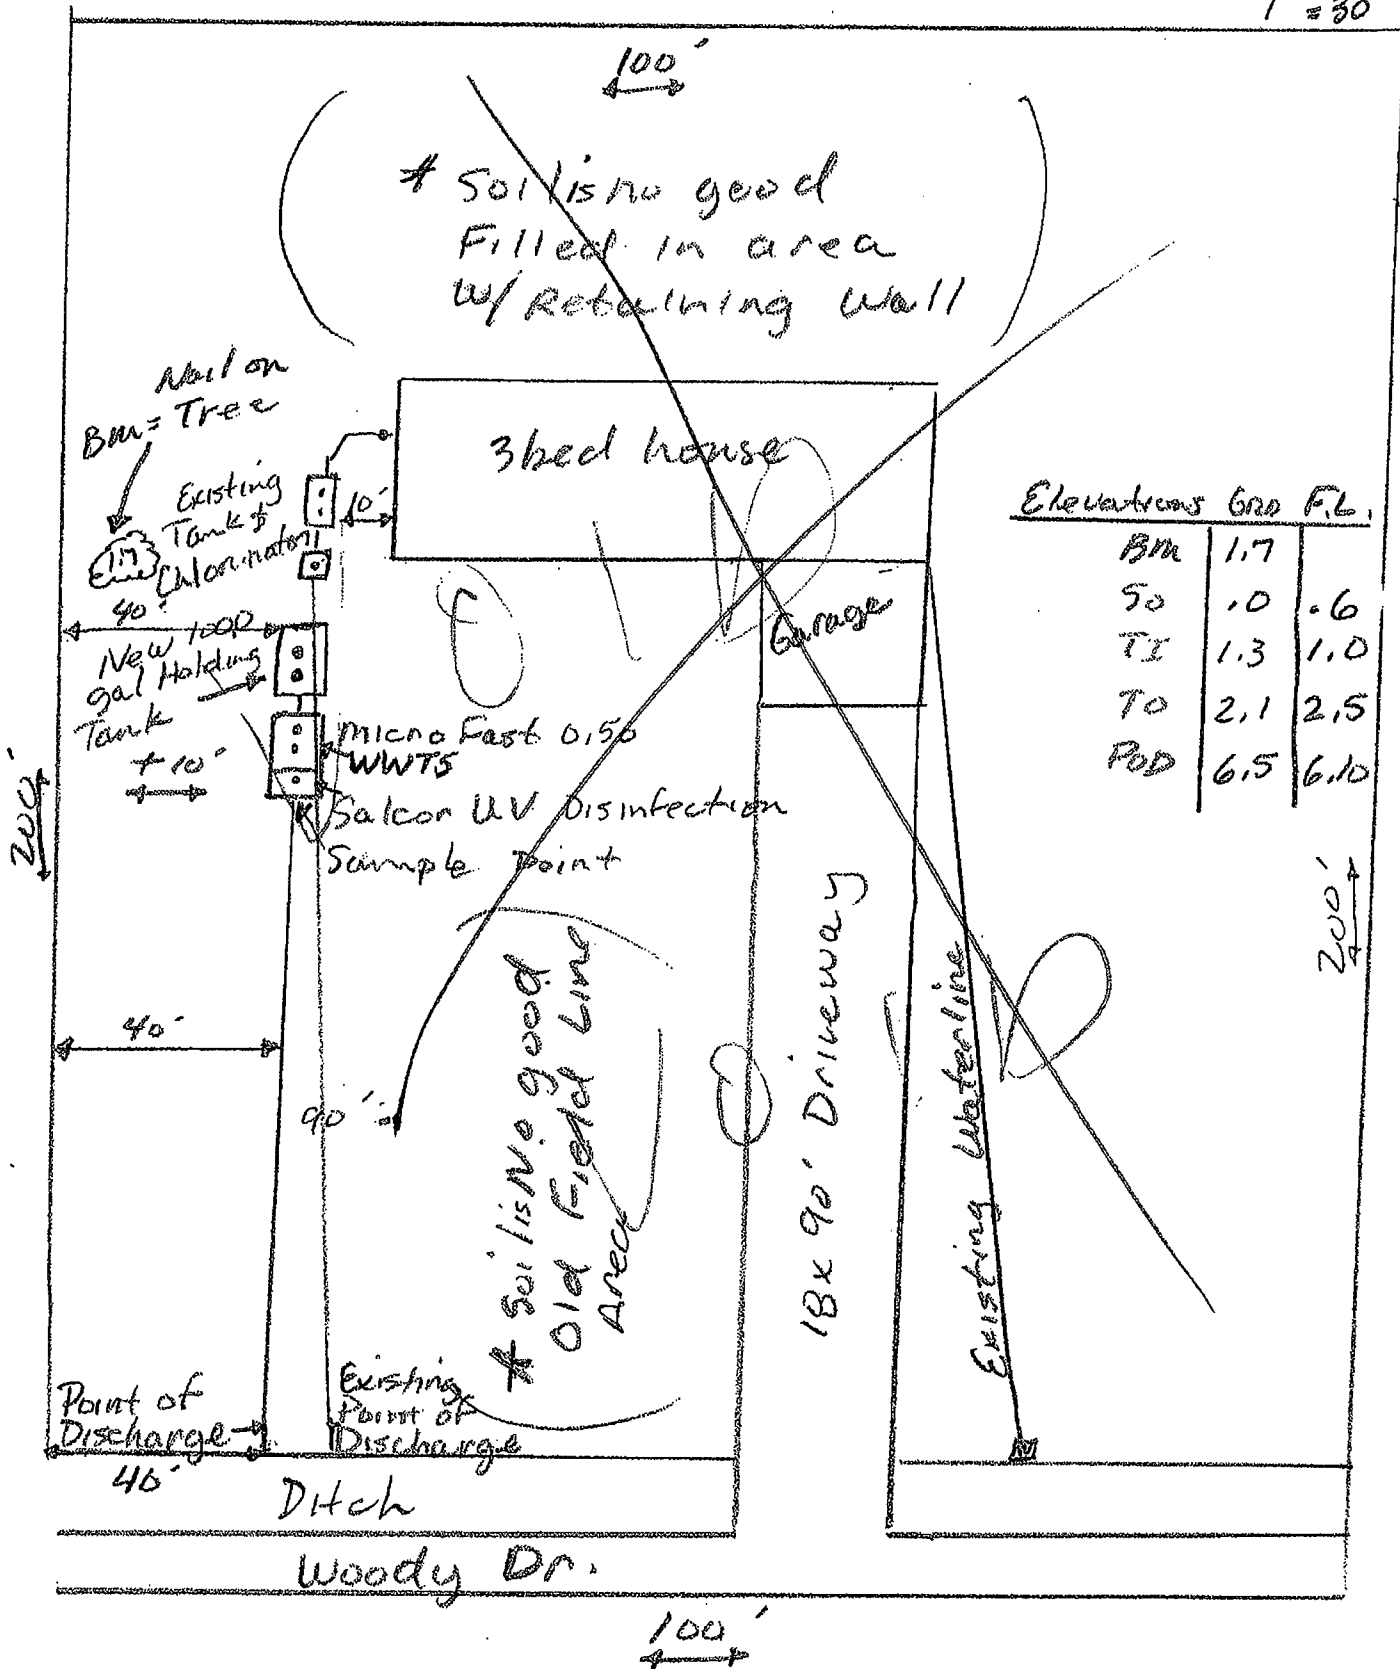 1" = 30'
100'
* Soil is no good
Filled in area
W/ Retaining Wall
Nail on
BM = Tree
1.7
3 bed house
Existing
Tank &
Chlorinator
10'
40'
New 1000
gal Holding
Tank
+10'
Micro Fast 0.50
WWTS
Salcor UV Disinfection
Sample Point
Garage
Elevations GRD F.L.
BM 1.7
SO .0 .6
TI 1.3 1.0
TO 2.1 2.5
POD 6.5 6.10
200'
200'
40'
90'
* Soil is No good
Old Field Line
Area
18 x 90' Driveway
Existing Waterline
Point of
Discharge
Existing
Point of
Discharge
40'
Ditch
Woody Dr.
100'